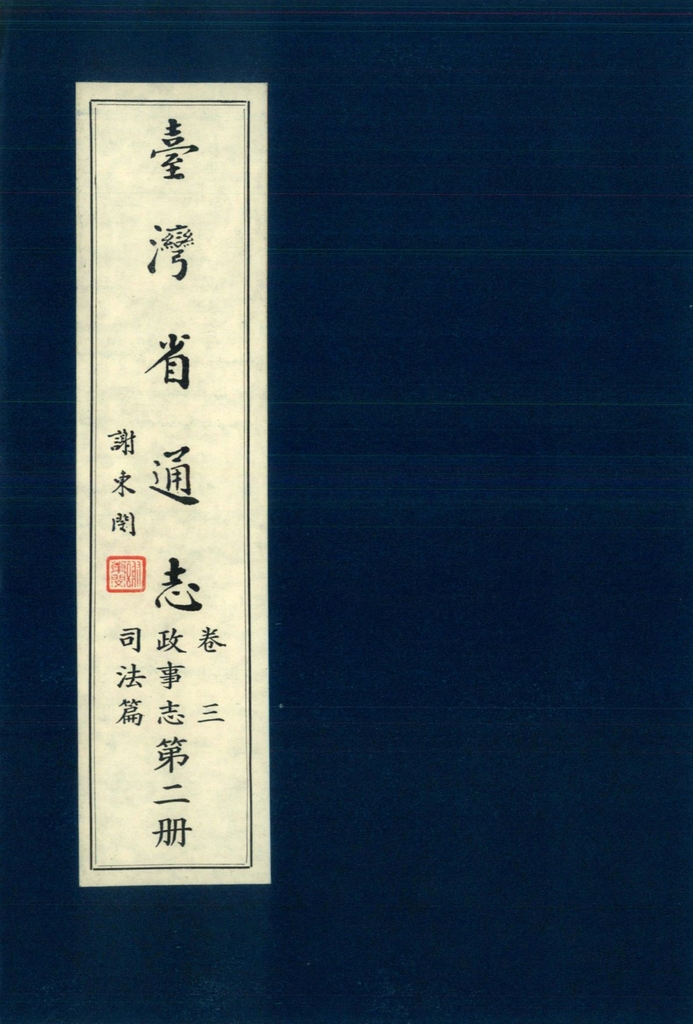 臺灣省通志
卷三
政事志第二册
司法篇
謝東閔